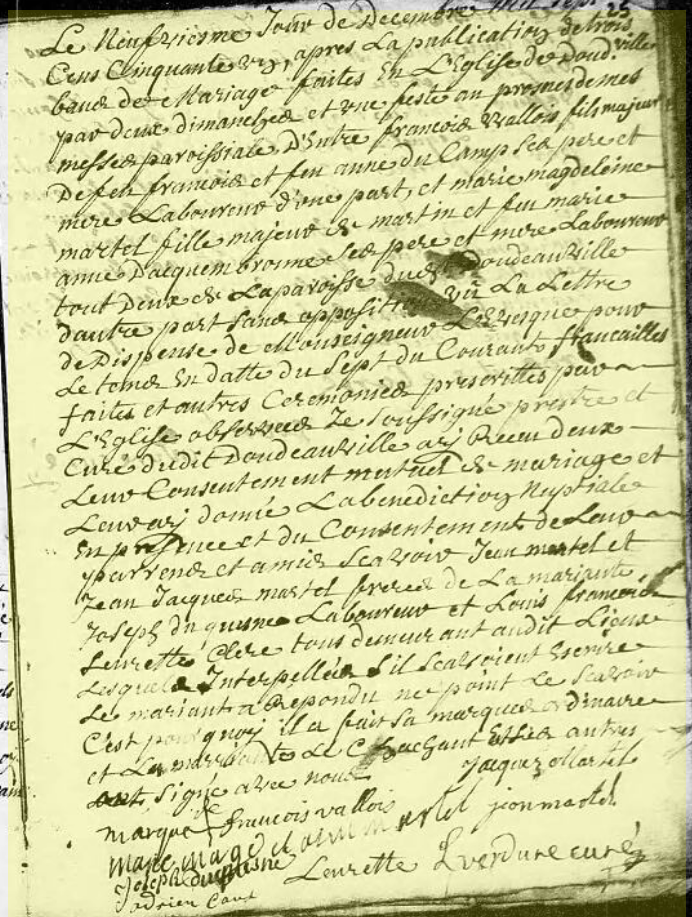 Le Neufviesme Jour de Decembre Mil Sept 25
Cens Cinquante apres La publication de trois
bans de Mariage faites En L'Eglise de Doud. ville
par deux dimanches et une feste au prosnes de mes
messes paroissiale, D'Entre francois Vallois fils majeur
De feu francois et feu anne du Camp Ses pere et
mere Laboureur d'une part, et marie magdeleine
martel fille majeur de martin et feu marie
anne Dacquembronne Ses pere et mere Laboureur
tout Deux de La paroisse dudt Doudeauville
dautre part Sans opposition Vü La Lettre
de Dispense de Monseigneur L'Evesque pour
Le tems En datte du Sept du Courant, fiancailles
faites et autres Ceremonies prescrittes par
L'Eglise observées Je Soussigné prestre et
Curé dudit Doudeauville aij Receu deux
Leur Consentement mutuel de mariage et
Leur aij donné La benediction Nuptiale
En presence et du Consentement de Leur
parrens et amis Scavoir Jean martel et
Jean Jacques martel freres de La mariante
Joseph du quesne Laboureur et Louis francois
Leurette Clerc tous demeurant audit Lieux
Lesquels Interpellés S'il Scavoient Escrire
Le mariant a Repondu ne point Le Scavoir
C'est pourquoij il a fait Sa marque ordinaire
et La mariante Le Sachant Et les autres
ont Signé avec nous
Jacque Martel
marque de francois vallois
marie mage martel jean martel
Joseph duquesne
Leurette Lverdure curé
adrien